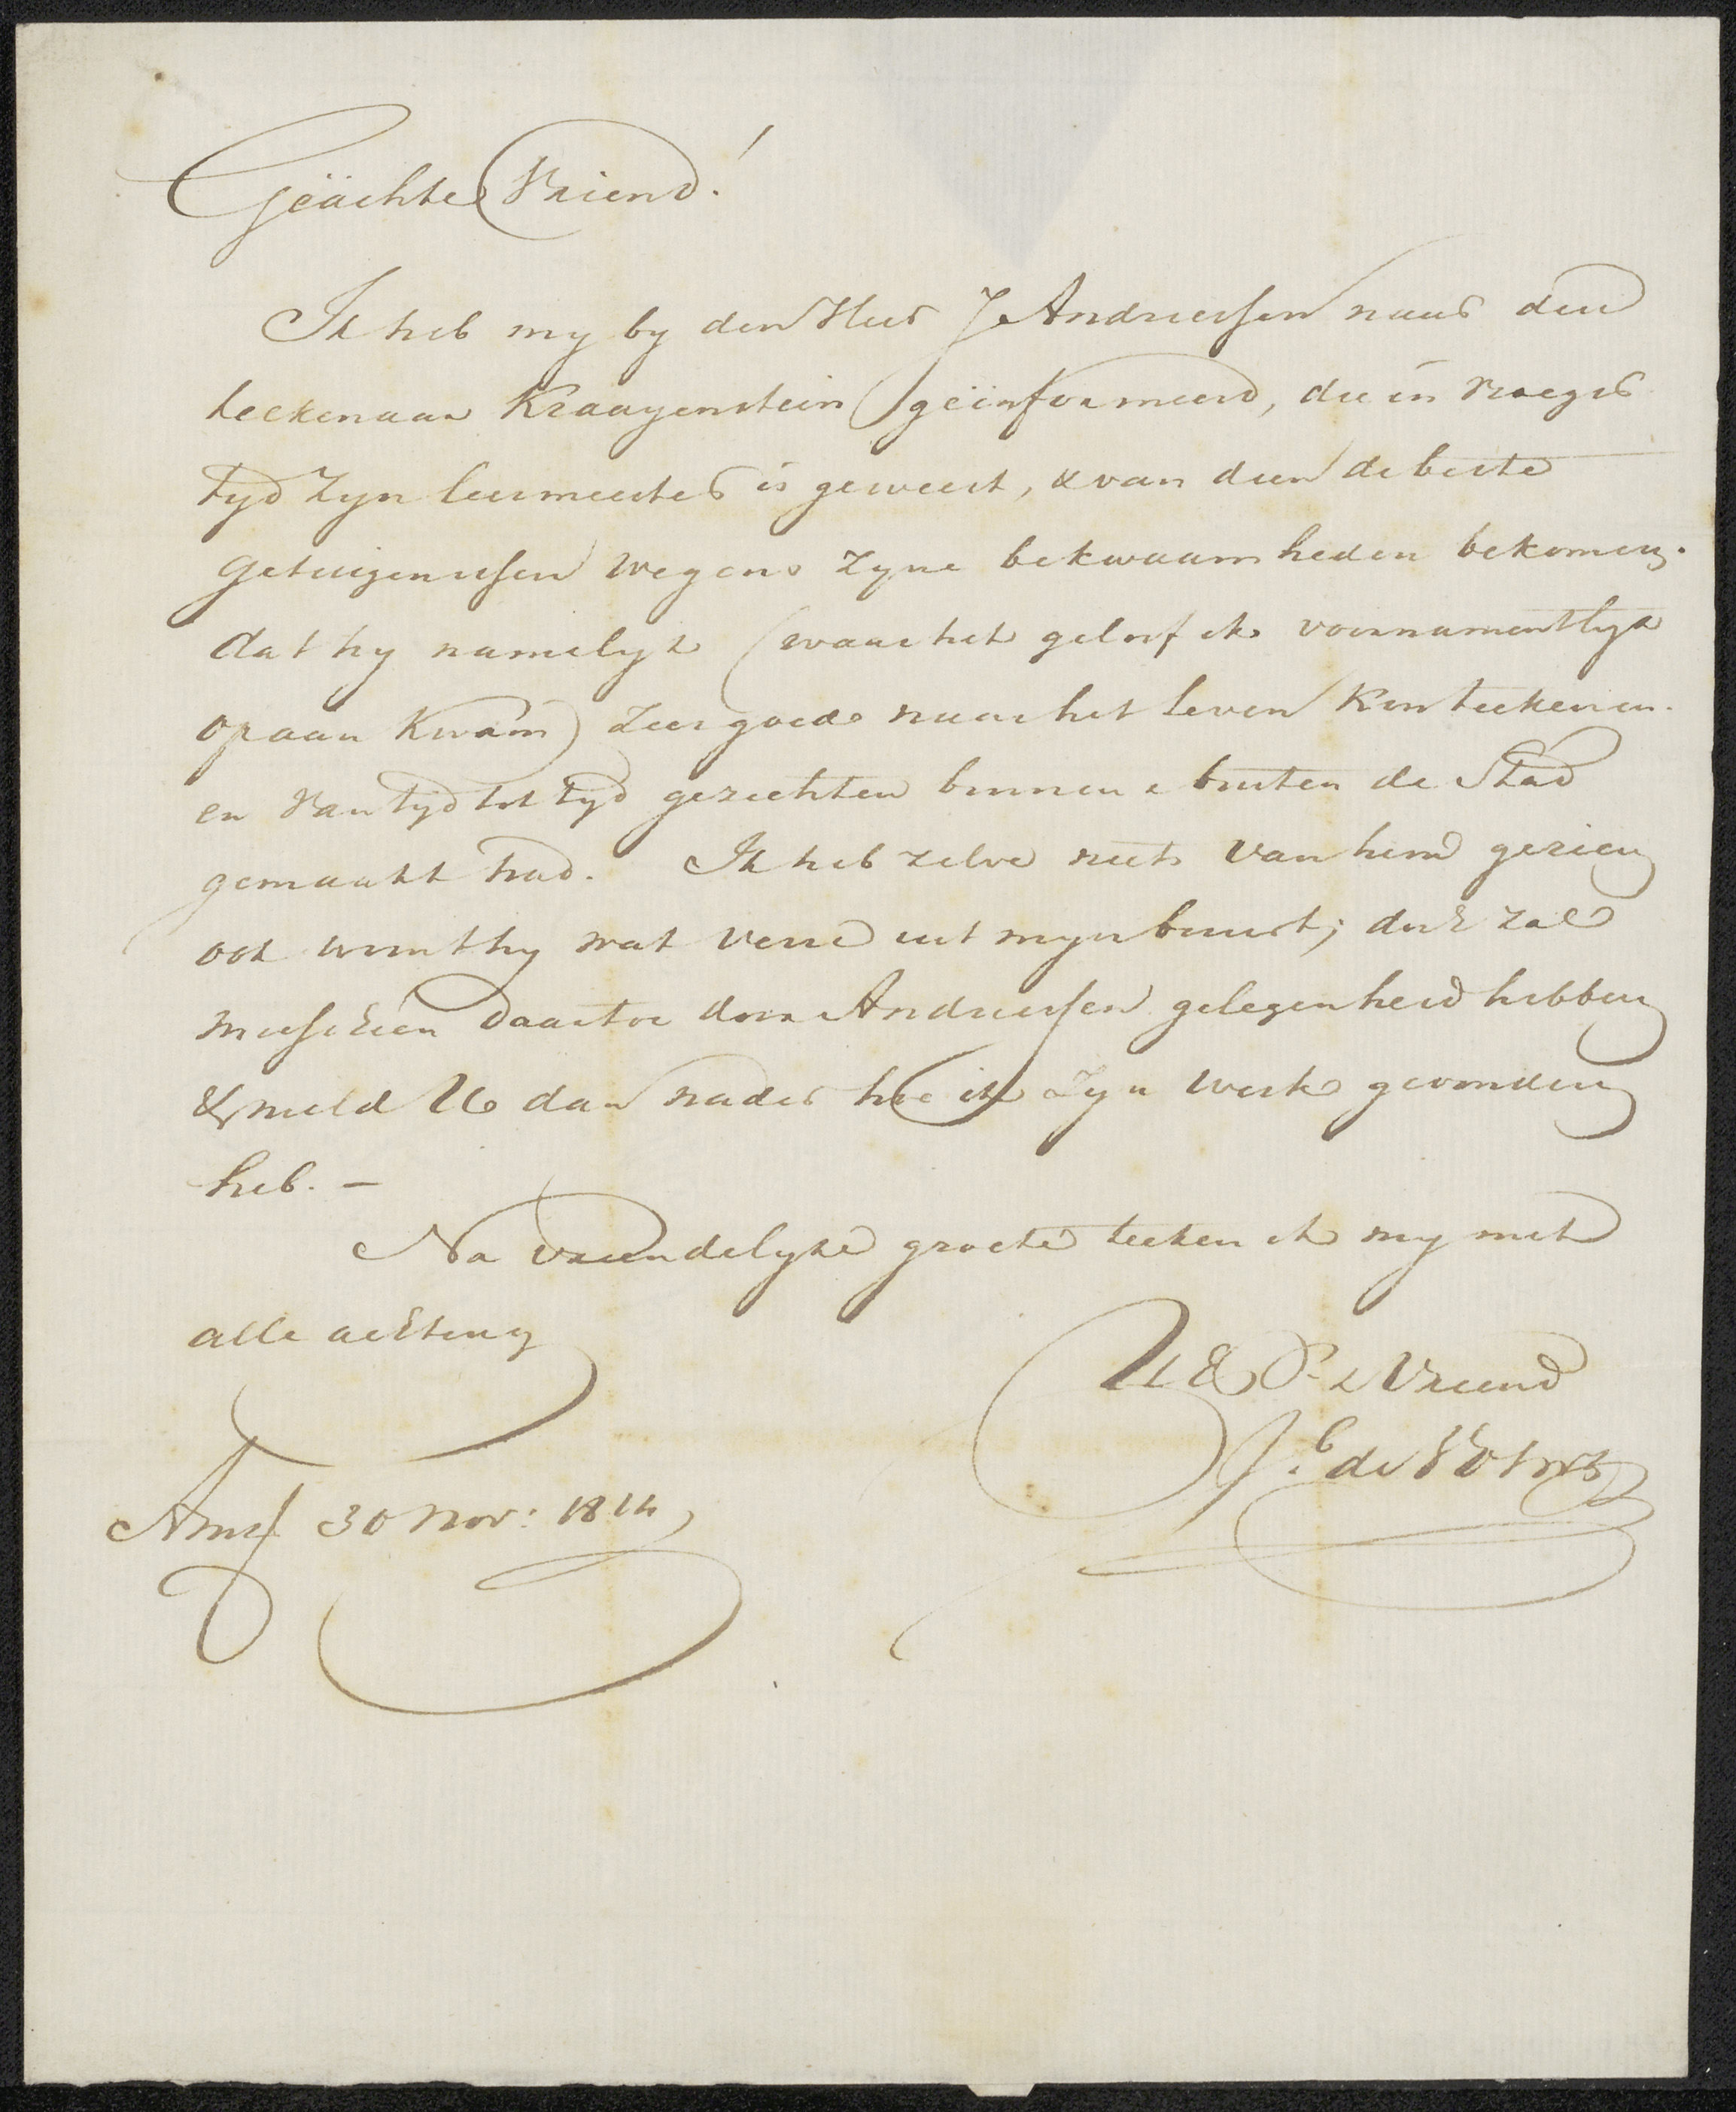 Geächte Vriend!
Ik heb my by den Heer J Andriessen naar den
teekenaar Kraayenstein geïnformeerd, die in vroeger
tyd zyn leermeester is geweest, & van dien de beste
getuigenissen wegens zyne bekwaamheden bekomen.
dat hy namelyk (waar het geloof ik voornamentlyk
op aan kwam) zeer goed naar het leven kon teekenen.
en van tyd tot tyd gezichten binnen & buiten de Stad
gemaakt had. Ik heb zelve niets van hem gezien
ook woont hy wat verre uit myn buurt; doch zal
misschien daartoe door Andriessen gelegenheid hebben
& meld U dan nader hoe ik zyn werk gevonden
heb. –
Na vriendelyke groete teeken ik my met
alle achting
UE D. & Vriend
Jb de Vos Wz
Amst 30 Nov: 1814